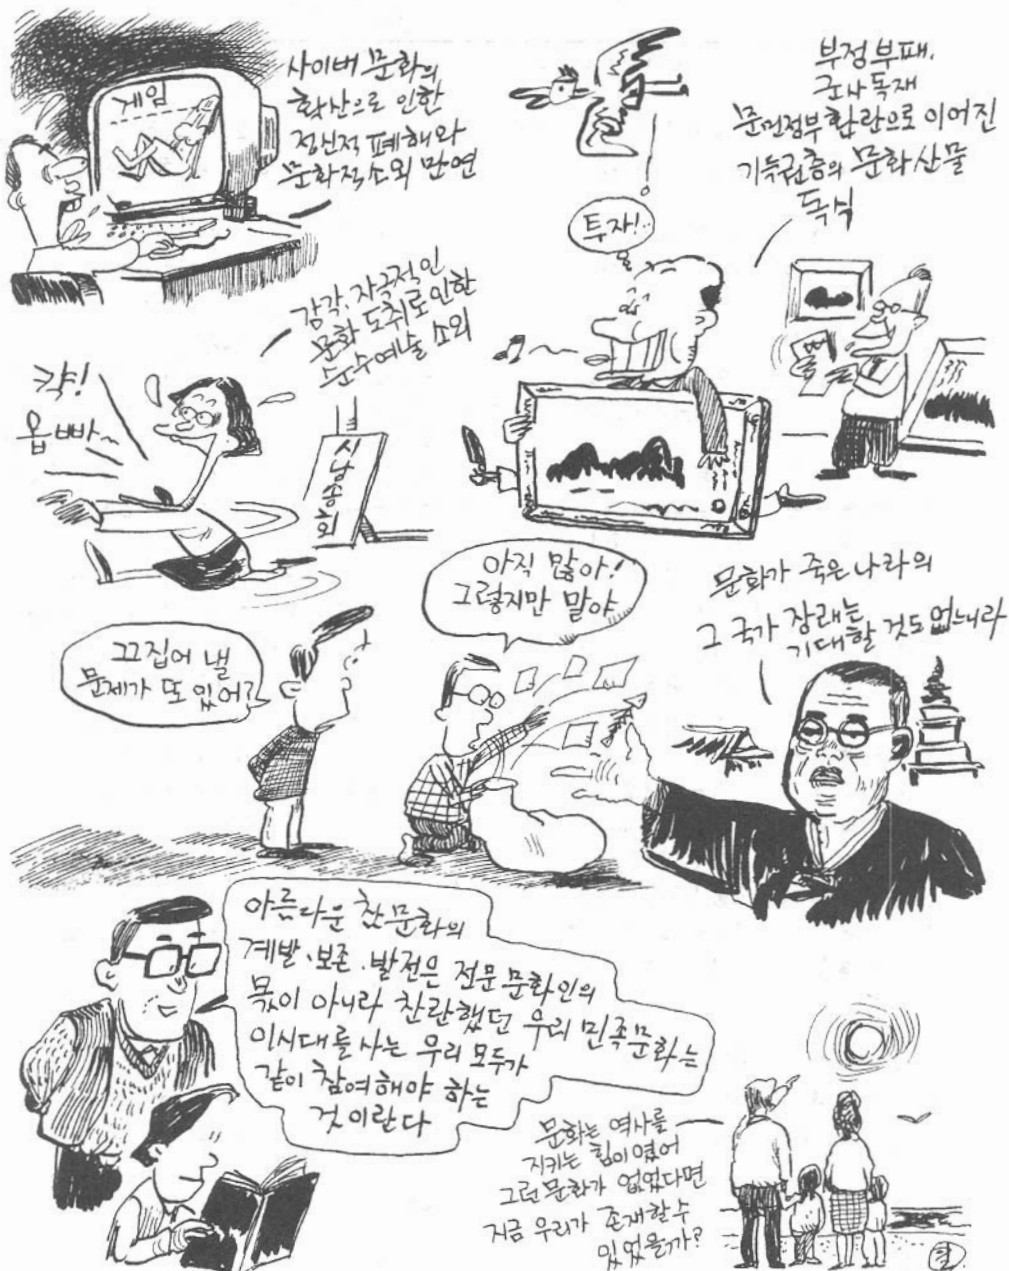 게임
사이버 문화의
확산으로 인한
정신적 폐해와
문화적 소외 만연
부정부패,
군사독재
문민정부 환란으로 이어진
기득권층의 문화산물
독식
투자!
감각, 자극적인
문화 도취로 인한
순수예술 소외
캭!
옵빠~
시낭송회
끄집어 낼
문제가 또 있어?
아직 많아!
그렇지만 말야
문화가 죽은 나라의
그 국가 장래는
기대할 것도 없느니라
아름다운 참문화의
계발·보존·발전은 전문 문화인의
몫이 아니라 찬란했던 우리 민족문화는
이시대를 사는 우리 모두가
같이 참여해야 하는
것이란다
문화는 역사를
지키는 힘이였어
그런 문화가 없었다면
지금 우리가 존재할 수
있었을까?